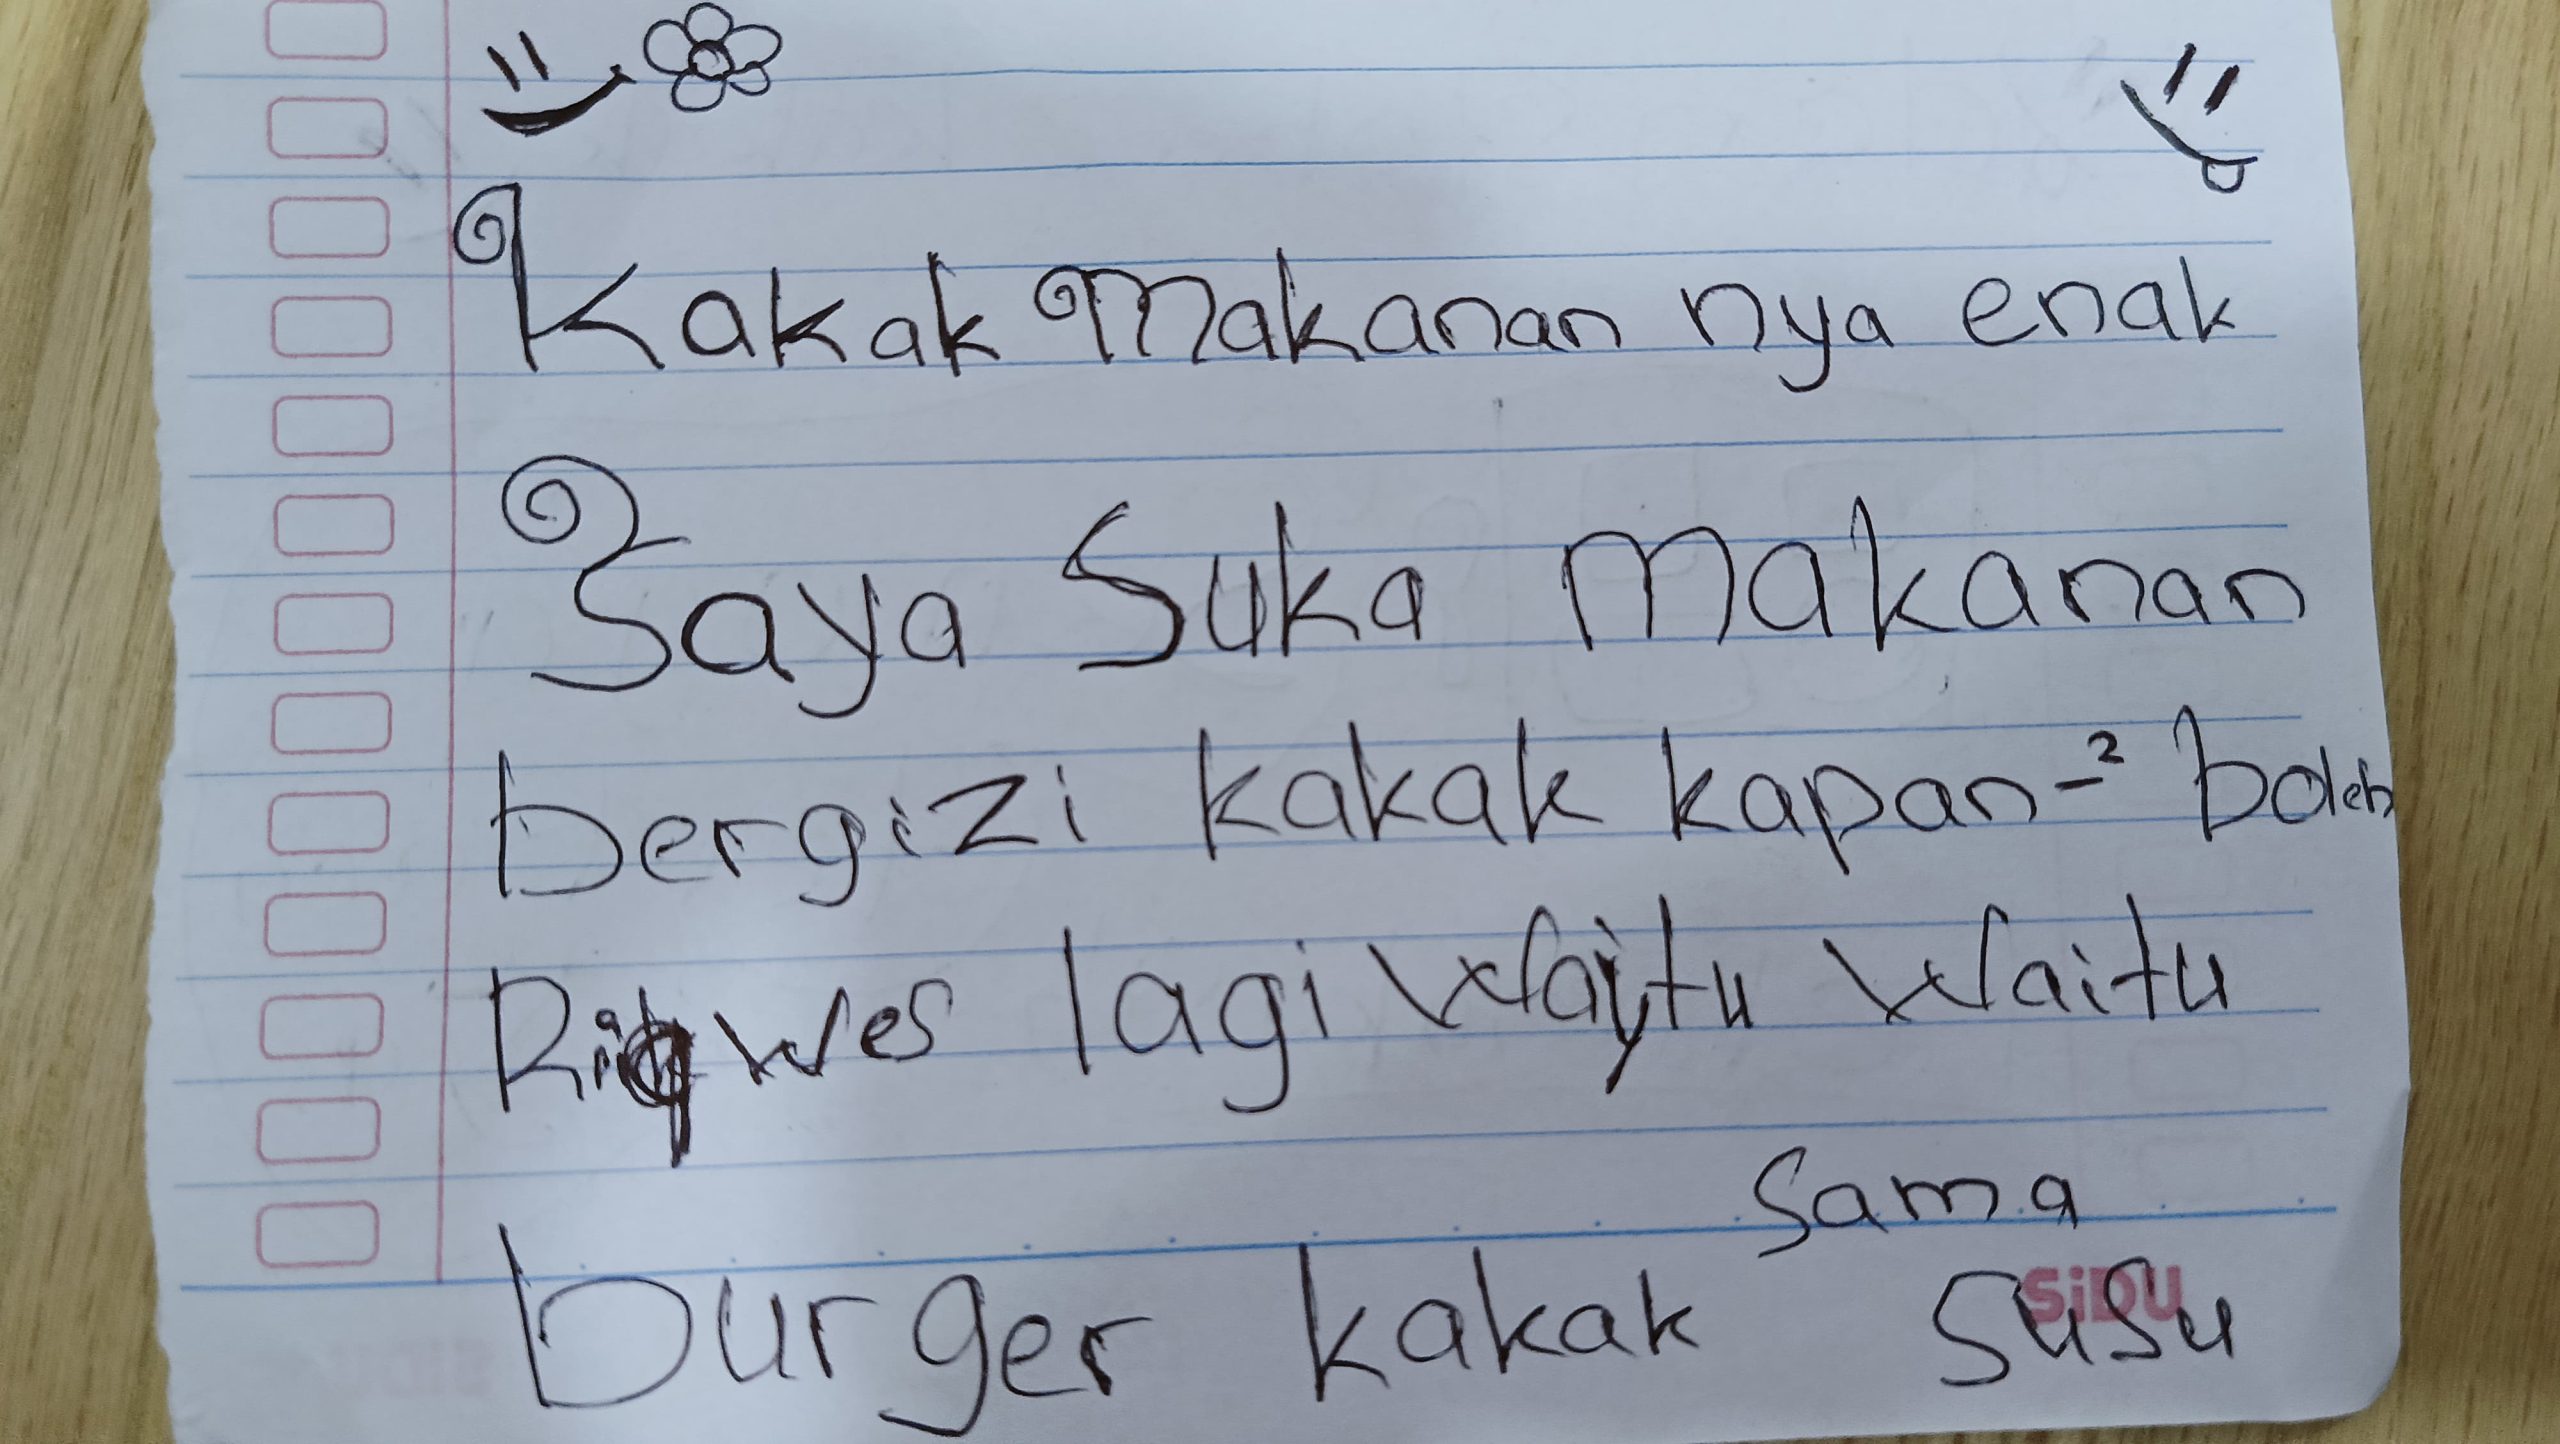 Kakak Makanan nya enak
Saya Suka Makanan
bergizi kakak kapan-² boleh
Riqwes lagi Waytu Waitu
sama
burger kakak susu
SiDU